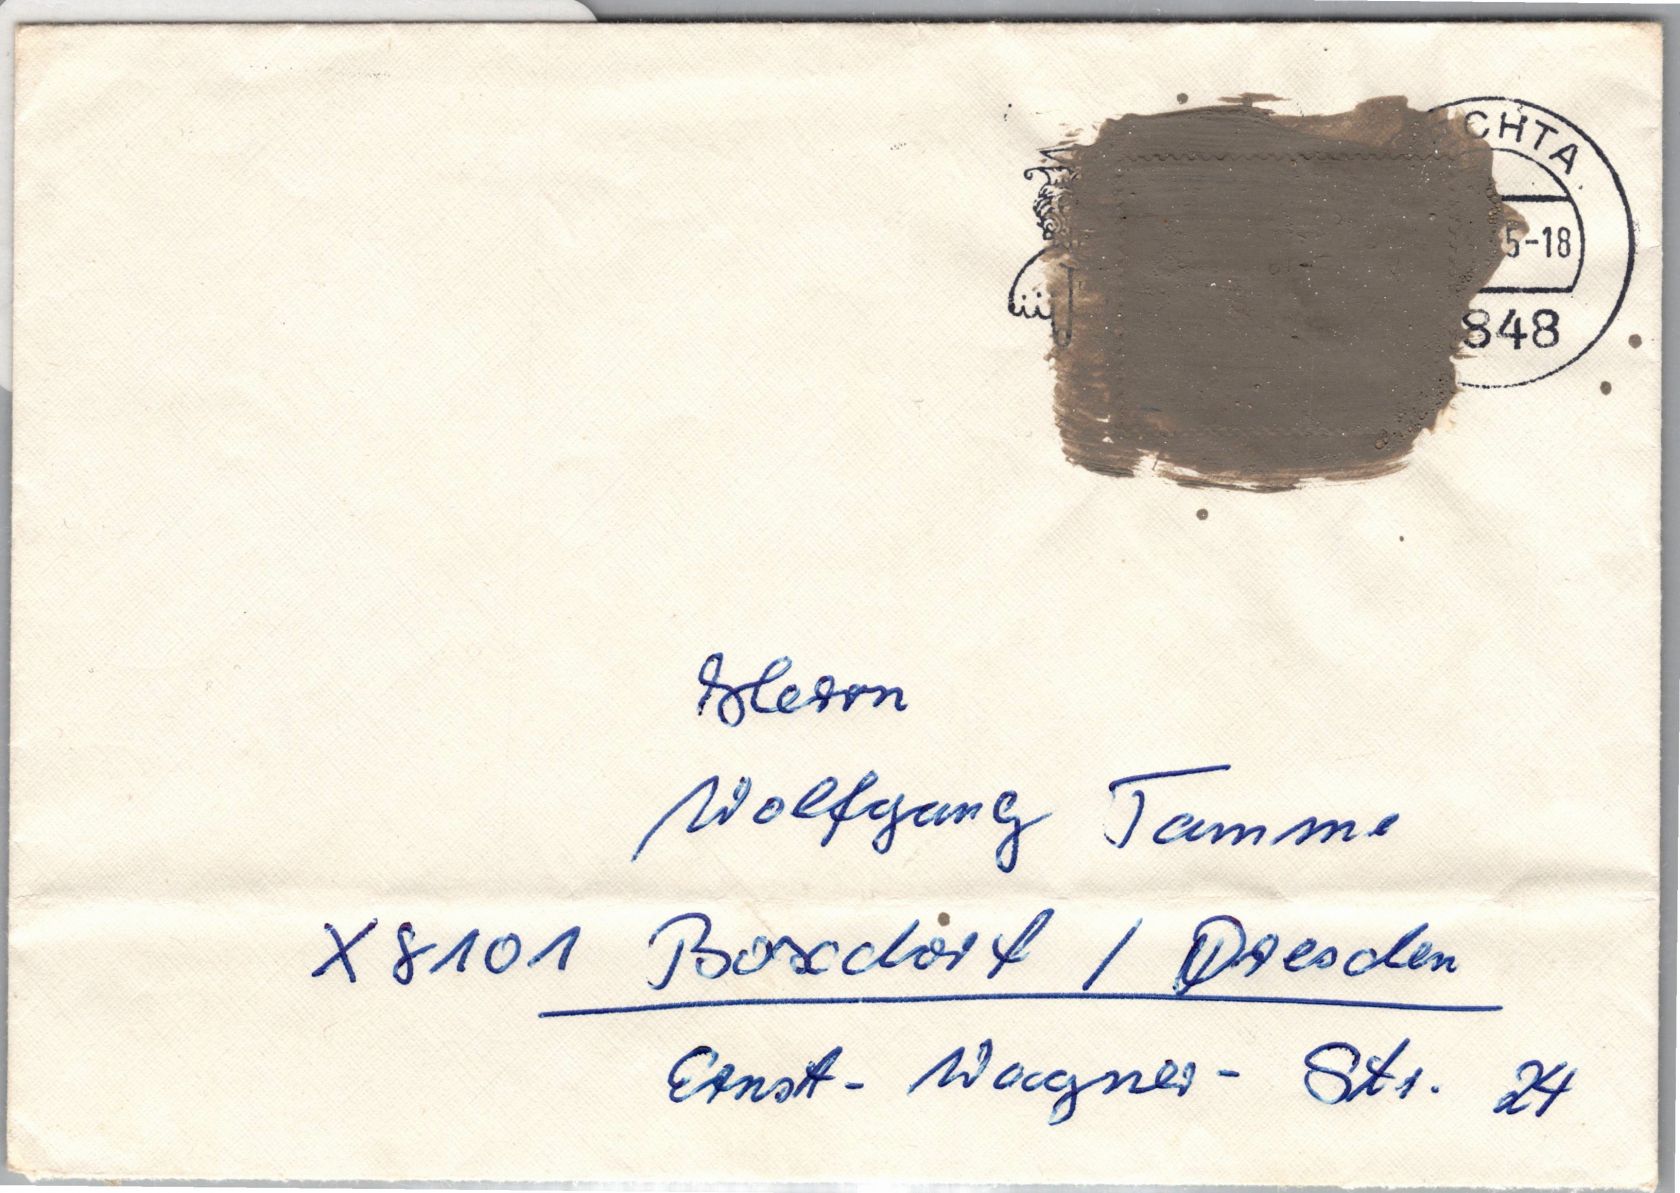 CHTA
5-18
848
Herrn
Wolfgang Tamme
X 8101 Boxdorf / Dresden
Ernst-Wagner-Str. 24